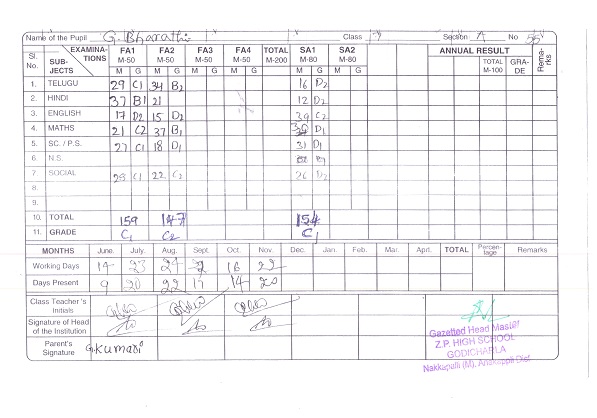 Name of the Pupil G. Bharathi Class Section A No 55
Sl. No. SUB-JECTS EXAMINA-TIONS FA1 M-50 FA2 M-50 FA3 M-50 FA4 M-50 TOTAL M-200 SA1 M-80 SA2 M-80 ANNUAL RESULT TOTAL M-100 GRA-DE Rema-rks
M G M G M G M G M G M G
1. TELUGU 29 C1 34 B2 16 D2
2. HINDI 37 B1 21 12 D2
3. ENGLISH 17 D2 15 D2 39 C2
4. MATHS 21 C2 37 B1 D1
5. SC. / P.S. 27 C1 18 D1 31 D1
6. N.S.
7. SOCIAL 28 C1 22 C2 26 D2
8.
9.
10. TOTAL 159 147 154
11. GRADE C1 C2 C1
MONTHS June. July. Aug. Sept. Oct. Nov. Dec. Jan. Feb. Mar. Aprt. TOTAL Percen-tage Remarks
Working Days 14 23 24 16 22
Days Present 9 20 22 17 14 20
Class Teacher's Initials
Signature of Head of the Institution
Parent's Signature G.Kumari
Gazetted Head Master
Z.P. HIGH SCHOOL
GODICHARLA
Nakkapalli (M), Anakappli Dist